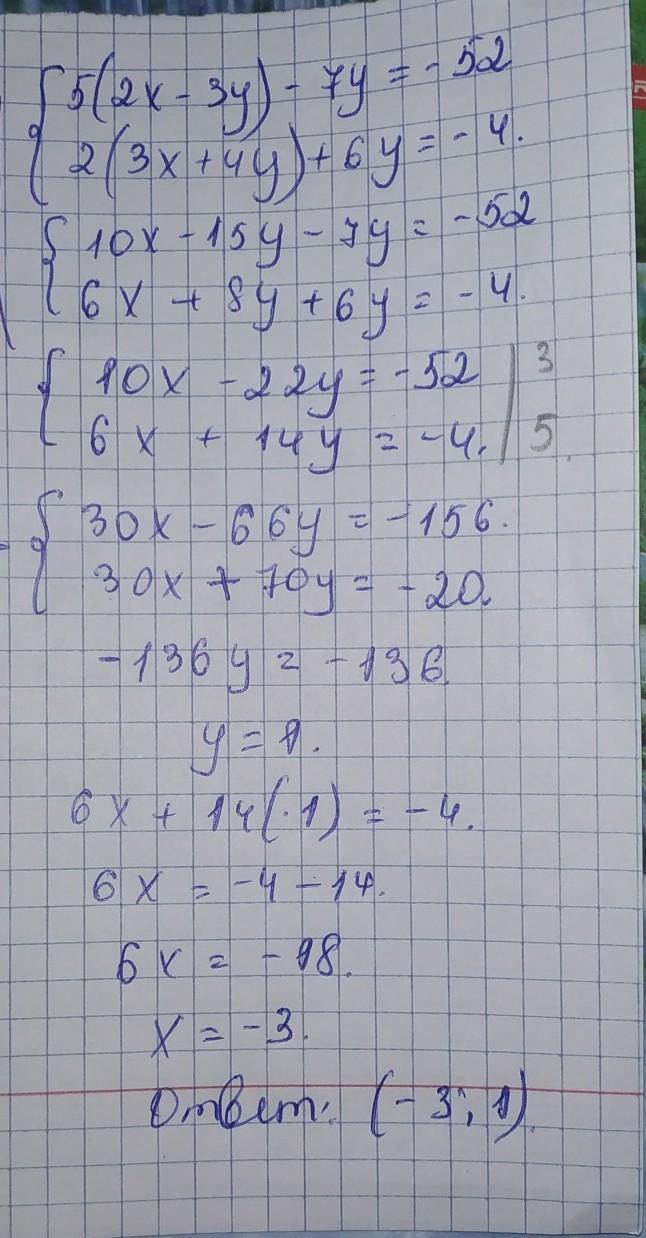 5(2x - 3y) - 7y = - 52
2(3x + 4y) + 6y = - 4.
10x - 15y - 7y = - 52
6x + 8y + 6y = - 4.
10x - 22y = - 52 | 3
6x + 14y = - 4. | 5
30x - 66y = - 156.
30x + 70y = - 20.
- 136y = - 136.
y = 1.
6x + 14(·1) = - 4.
6x = - 4 - 14.
6x = - 18.
x = - 3.
Ответ: (- 3; 1)